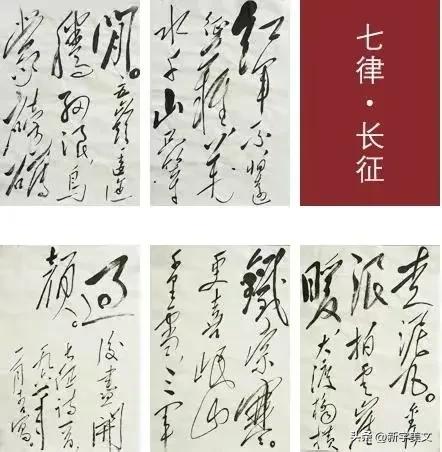 七律·长征
红军不怕远
征难万
水千山只等
闲。五岭逶迤
腾细浪,乌
蒙磅礴
走泥丸。金沙
浪拍云崖
暖,大渡桥横
铁索寒。
更喜岷山
千里雪,三军
过
后尽开
颜。
长征诗一首
头条 @新宇美文